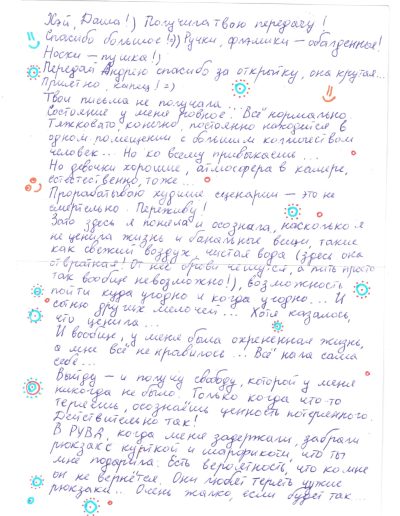 Хэй, Даша!) Получила твою передачу!
Спасибо большое!)) Ручки, фломики – обалденные!
Носки – пушка!)
Передай Андрею спасибо за открытку, она крутая...
Приятно, капец! =)
Твои письма не получала...
Состояние у меня ровное. Всё нормально.
Тяжковато, конечно, постоянно находится в
одном помещении с большим количеством
человек... Но ко всему привыкаешь...
Но девочки хорошие, атмосфера в камере,
естественно, тоже...
Прорабатываю худшие сценарии – это не
смертельно. Переживу!
Зато здесь я поняла и осознала, насколько я
не ценила жизнь и банальные вещи, такие
как свежий воздух, чистая вода (здесь она
отвратная! От неё брови чешутся, а пить просто
так вообще невозможно!), возможность
пойти куда угодно и когда угодно... И
сотню других мелочей... Хотя казалось,
что ценила...
И вообще, у меня была охрененная жизнь,
а мне всё не нравилось... Всё мало
себе...
Выйду – и получу свободу, которой у меня
никогда не было. Только когда что-то
теряешь, осознаёшь ценность потерянного.
Действительно так!
В РУВД, когда меня задержали, забрали
рюкзак с курткой и шарфиком, что ты
мне подарила. Есть вероятность, что ко мне
он не вернётся. Они любят терять чужие
рюкзаки... Очень жалко, если будет так...